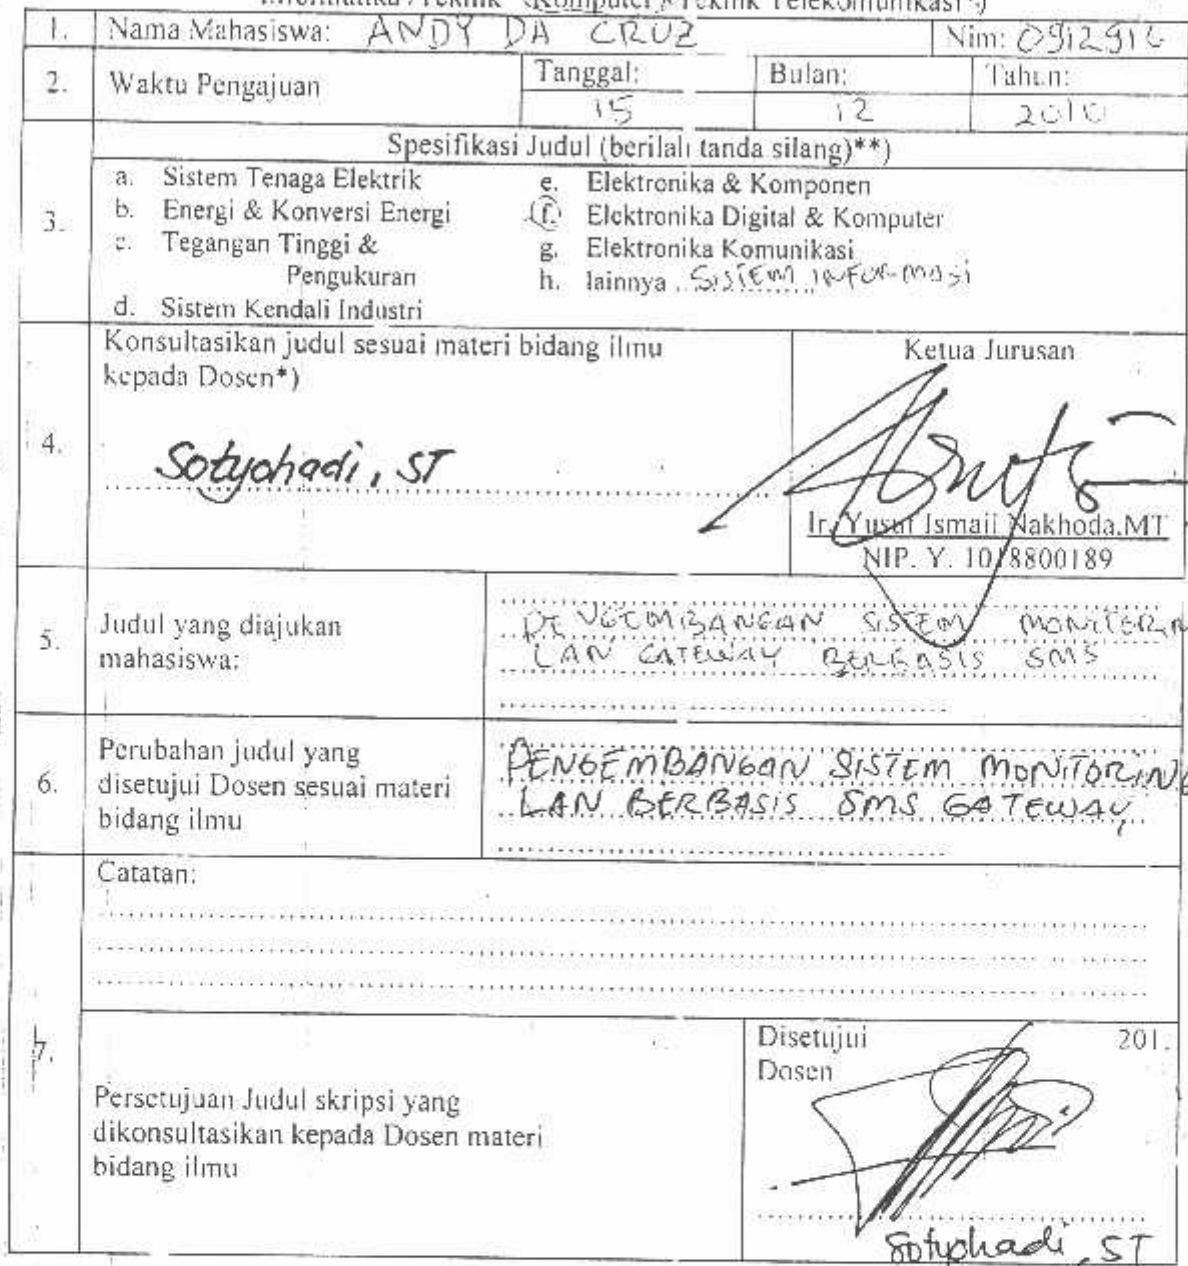 Informatika /Teknik (Komputer)/Teknik Telekomunikasi*)
1. Nama Mahasiswa: ANDY DA CRUZ Nim:
2. Waktu Pengajuan Tanggal: Bulan: Tahun:
15 12 2010
3. Spesifikasi Judul (berilah tanda silang)**)
a. Sistem Tenaga Elektrik
b. Energi & Konversi Energi
c. Tegangan Tinggi &
Pengukuran
d. Sistem Kendali Industri
e. Elektronika & Komponen
f. Elektronika Digital & Komputer
g. Elektronika Komunikasi
h. lainnya SISTEM INFORMASI
4. Konsultasikan judul sesuai materi bidang ilmu
kepada Dosen*)
Sotyohadi, ST
Ketua Jurusan
Ir. Yusuf Ismail Nakhoda,MT
NIP. Y. 1018800189
5. Judul yang diajukan
mahasiswa:
PENGEMBANGAN SISTEM MONITORIN
LAN GATEWAY BERBASIS SMS
6. Perubahan judul yang
disetujui Dosen sesuai materi
bidang ilmu
PENGEMBANGAN SISTEM MONITORING
LAN BERBASIS SMS GATEWAY
Catatan:
7. Persetujuan Judul skripsi yang
dikonsultasikan kepada Dosen materi
bidang ilmu
Disetujui 201.
Dosen
Sotyohadi, ST